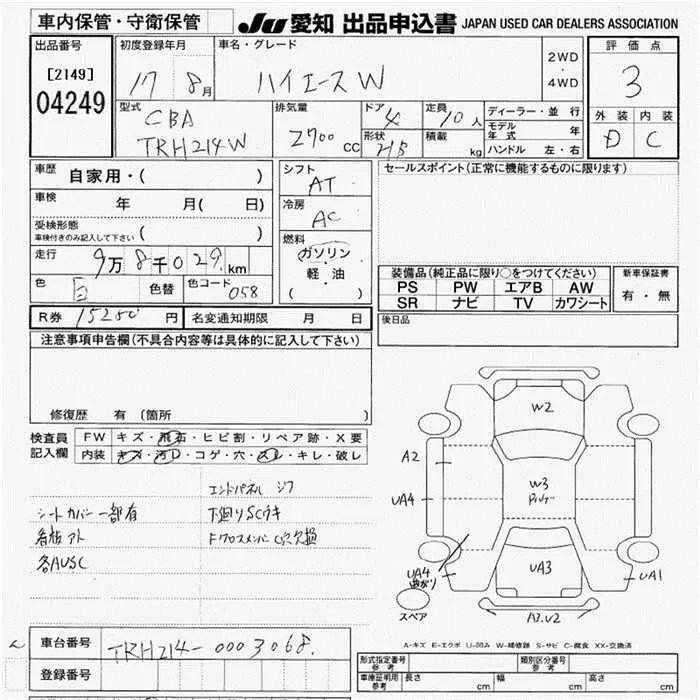 車内保管・守衛保管
JU 愛知 出品申込書 JAPAN USED CAR DEALERS ASSOCIATION
出品番号
[2149]
04249
初度登録年月
17 8月
車名・グレード
ハイエースW
2WD
・
4WD
評価点
3
外装 内装
D C
型式
CBA
TRH214W
排気量
2700 cc
ドア 4
形状 HB
定員 10人
積載 kg
ディーラー・並行
モデル年式 年
ハンドル 左・右
車歴 自家用・( )
車検 年 月( 日)
受検形態
車検付きのみ記入して下さい ( )
走行 9万8千029km
色 白 色替 色コード 058
シフト
AT
冷房
AC
燃料
ガソリン
・
軽・油
( )
セールスポイント(正常に機能するものに限ります)
装備品(純正品に限り○をつけてください)
PS PW エアB AW
SR ナビ TV カワシート
新車保証書
有・無
R券 15280円 名変通知期限 月 日
後日品
注意事項申告欄(不具合内容等は具体的に記入して下さい)
修復歴 有(箇所 )
検査員
記入欄
FW キズ・飛石・ヒビ割・リペア跡・X要
内装 キズ・汚レ・コゲ・穴・スレ・キレ・破レ
エンドパネル ジワ
シートカバー一部有 下廻りSCウキ
看板アト Fクロスメンバー C穴欠損
各AUSC
W2
A2
W3
UA4
UA3
UA4
UA1
スペア
A3.U2
A-キズ E-エクボ U-凹み W-補修跡 S-サビ C-腐食 XX-交換済
車台番号 TRH214-0003068
登録番号
形式指定番号
参考
類別区分番号
参考
車庫証明用
参考
長さ cm 幅 cm 高さ cm